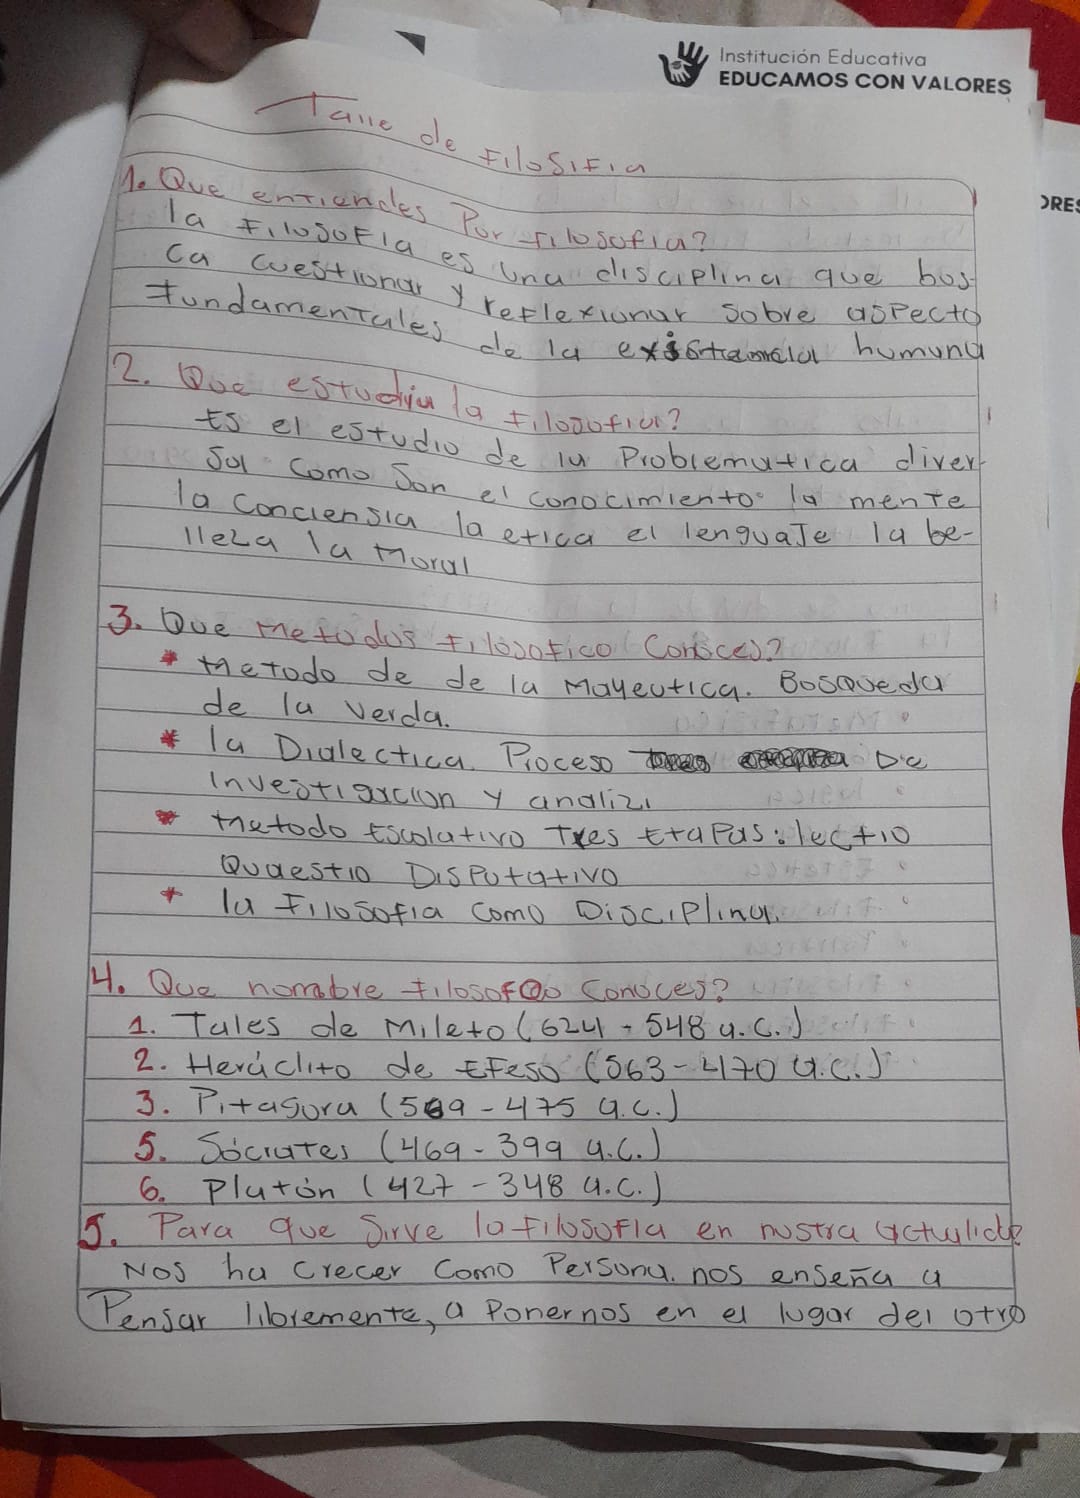 Institución Educativa
EDUCAMOS CON VALORES
ORES
Talle de Filosifia
1. Que entiendes Por Filosofia?
la Filosofia es una disciplina que bus-
ca cuestionar y reflexionar sobre aspecto
Fundamentales de la existencia humana
2. Que estudia la Filosofia?
Es el estudio de la Problematica diver
sa como son el conocimiento la mente
la conciensia la etica el lenguaje la be-
lleza la moral
3. Que metodos Filosofico Conoces?
* metodo de de la Mayeutica. Bosqueda
de la verda.
* la Dialectica. Proceso De
Investigacion y analizi
* metodo Escolativo Tres Etapas: lectio
Quaestio Disputativo
* la Filosofia como Disciplina.
4. Que nombre Filosofo Conoces?
1. Tales de Mileto (624 - 548 a.c.)
2. Heráclito de EFeso (563 - 470 a.c.)
3. Pitagora (569 - 475 a.c.)
5. Sócrates (469 - 399 a.c.)
6. Platón (427 - 348 a.c.)
5. Para que Sirve la Filosofia en nustra
Nos ha crecer como Persona. nos enseña a
Pensar libremente, a Ponernos en el lugar del otro